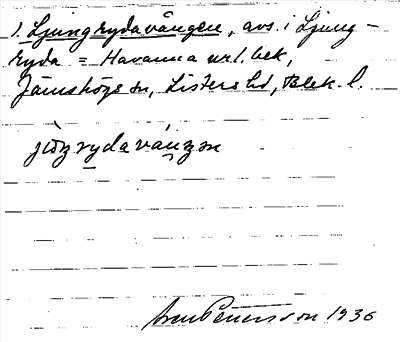 1. Ljungrydavången, avs. i Ljung-
ryda = Havanna url. bek,
Jämshögs sn, Listers hd, Blek. l.
jöŋrydavåŋən
Pettersson 1936